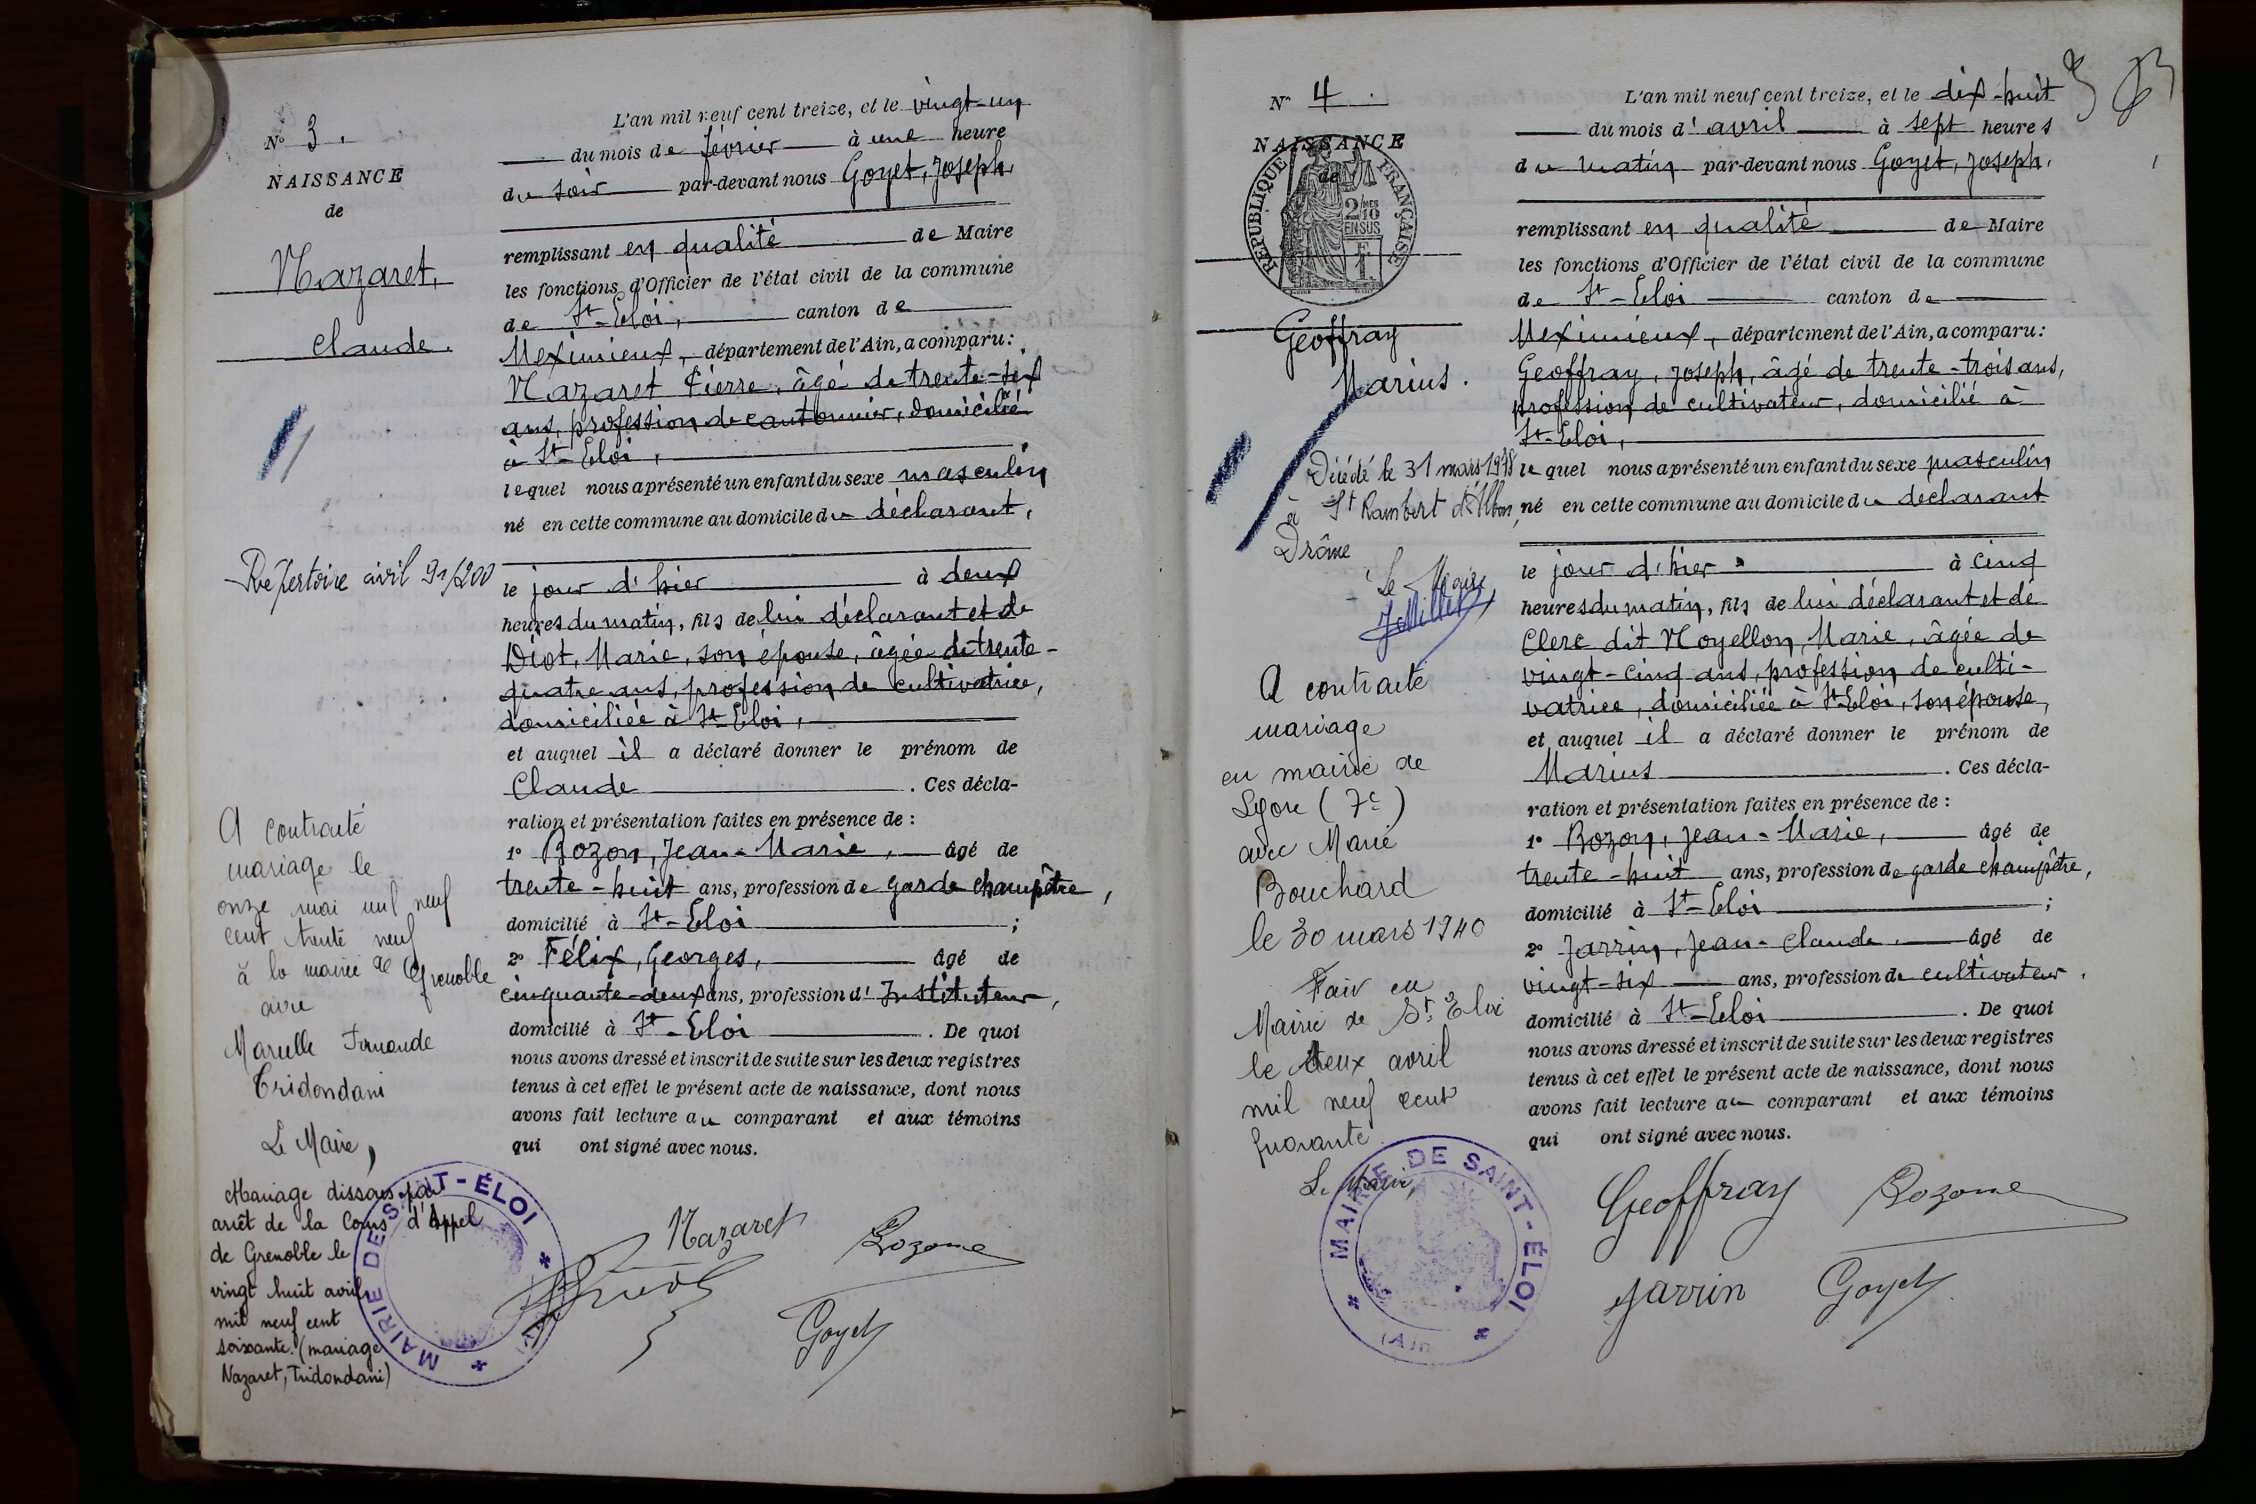 N° 3.
NAISSANCE
de
Nazaret,
Claude.
Répertoire civil 91/200
A contracté
mariage le
onze mai mil neuf
cent trente neuf
à la mairie de Grenoble
avec
Marcelle Fernande
Tridondani
Le Maire,
Mariage dissous par
arrêt de la Cour d'Appel
de Grenoble le
vingt huit avril
mil neuf cent
soixante. (mariage
Nazaret, Tridondani)
MAIRIE DE SAINT-ÉLOI
(Ain)
L'an mil neuf cent treize, et le vingt-un
du mois de février à une heure
du soir par-devant nous Goyet, Joseph,
remplissant en qualité de Maire
les fonctions d'Officier de l'état civil de la commune
de St-Eloi, canton de
Meximieux, département de l'Ain, a comparu:
Nazaret Pierre, âgé de trente-six
ans, profession de cantonnier, domicilié
à St-Eloi,
lequel nous a présenté un enfant du sexe masculin
né en cette commune au domicile du déclarant,
le jour d'hier à deux
heures du matin, fils de lui déclarant et de
Diot, Marie, son épouse, âgée de trente-
quatre ans, profession de cultivatrice,
domiciliée à St-Eloi,
et auquel il a déclaré donner le prénom de
Claude. Ces décla-
ration et présentation faites en présence de :
1° Bozon, Jean-Marie, âgé de
trente-huit ans, profession de garde champêtre,
domicilié à St-Eloi ;
2° Félix, Georges, âgé de
cinquante-deux ans, profession d'Instituteur,
domicilié à St-Eloi. De quoi
nous avons dressé et inscrit de suite sur les deux registres
tenus à cet effet le présent acte de naissance, dont nous
avons fait lecture au comparant et aux témoins
qui ont signé avec nous.
Nazaret Bozon
Goyet
N° 4.
NAISSANCE
de
RÉPUBLIQUE FRANÇAISE
2/10 MES
EN SUS
Geoffray
Marius.
Décédé le 31 mars 1978
à St Rambert d'Albon,
Drôme
Le Maire
A contracté
mariage
en mairie de
Lyon (7e)
avec Marie
Bouchard
le 30 mars 1940
Fait en
Mairie de St Eloi
le deux avril
mil neuf cent
quarante
Le Maire,
MAIRIE DE SAINT-ÉLOI
(Ain)
L'an mil neuf cent treize, et le dix-huit
du mois d'avril à sept heures
du matin par-devant nous Goyet, Joseph,
remplissant en qualité de Maire
les fonctions d'Officier de l'état civil de la commune
de St-Eloi canton de
Meximieux, département de l'Ain, a comparu:
Geoffray, Joseph, âgé de trente-trois ans,
profession de cultivateur, domicilié à
St-Eloi,
lequel nous a présenté un enfant du sexe masculin
né en cette commune au domicile du déclarant
le jour d'hier à cinq
heures du matin, fils de lui déclarant et de
Clerc dit Noyellon, Marie, âgée de
vingt-cinq ans, profession de culti-
vatrice, domiciliée à St-Eloi, son épouse,
et auquel il a déclaré donner le prénom de
Marius. Ces décla-
ration et présentation faites en présence de :
1° Bozon, Jean-Marie, âgé de
trente-huit ans, profession de garde champêtre,
domicilié à St-Eloi ;
2° Jarrin, Jean-Claude. âgé de
vingt-six ans, profession de cultivateur,
domicilié à St-Eloi. De quoi
nous avons dressé et inscrit de suite sur les deux registres
tenus à cet effet le présent acte de naissance, dont nous
avons fait lecture au comparant et aux témoins
qui ont signé avec nous.
Geoffray Bozon
Jarrin Goyet